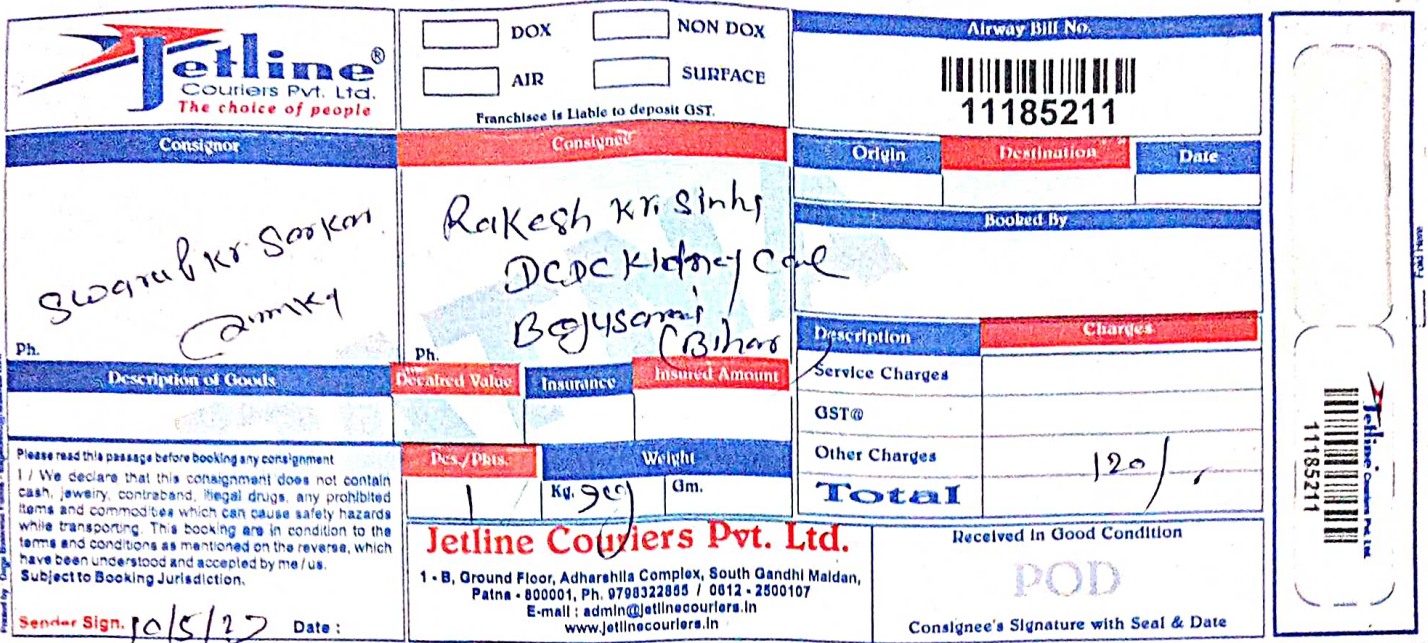 Jetline®
Couriers Pvt. Ltd.
The choice of people
DOX
NON DOX
AIR
SURFACE
Franchisee is Liable to deposit GST.
Airway Bill No.
11185211
Consignor
Consignee
Origin
Destination
Date
Kr. Sarkar
Rakesh Kr. Sinha
DCDC Kidney Care
(Bihar)
Ph.
Ph.
Booked By
Description
Charges
Description of Goods
Decalred Value
Insurance
Insured Amount
Service Charges
GST@
Other Charges
Total
120/
Please read this passage before booking any consignment
I / We declare that this consignment does not contain
cash, jewelry, contraband, illegal drugs, any prohibited
items and commodities which can cause safety hazards
while transporting. This booking are in condition to the
terms and conditions as mentioned on the reverse, which
have been understood and accepted by me / us.
Subject to Booking Jurisdiction.
Sender Sign. 10/5/22 Date :
Pcs./Pkts.
Weight
1
Kg.
Gm.
Jetline Couriers Pvt. Ltd.
1 - B, Ground Floor, Adharshila Complex, South Gandhi Maidan,
Patna - 800001, Ph. 9798322855 / 0612 - 2500107
E-mail : admin@jetlinecouriers.in
www.jetlinecouriers.in
Received in Good Condition
POD
Consignee's Signature with Seal & Date
Jetline Couriers Pvt. Ltd.
11185211
Fold Here